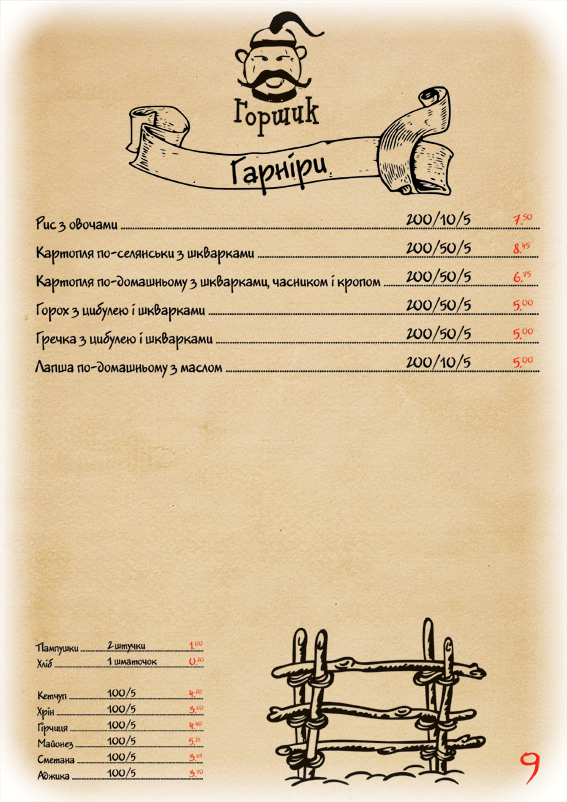 Горщик
Гарніри
Рис з овочами 200/10/5 7.50
Картопля по-селянськи з шкварками 200/50/5 8.45
Картопля по-домашньому з шкварками, часником і кропом 200/50/5 6.75
Горох з цибулею і шкварками 200/50/5 5.00
Гречка з цибулею і шкварками 200/50/5 5.00
Лапша по-домашньому з маслом 200/10/5 5.00
Пампушки 2 штучки 1.00
Хліб 1 шматочок
Кетчуп 100/5
Хрін 100/5
Гірчиця 100/5
Майонез 100/5
Сметана 100/5
Аджика 100/5
9